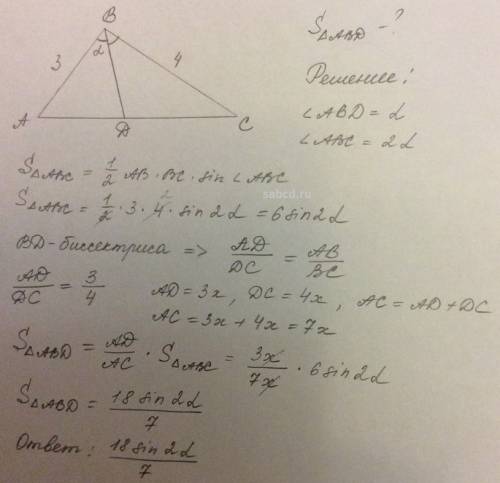 B
α
3
4
A
D
C
S△ABD - ?
Решение:
∠ABD = α
∠ABC = 2α
S△ABC = 1/2 AB · BC · sin ∠ABC
sabcd.ru
S△ABC = 1/2 · 3 · 4 · sin 2α = 6 sin 2α
BD - биссектриса => AD/DC = AB/BC
AD/DC = 3/4 AD = 3x, DC = 4x, AC = AD + DC
AC = 3x + 4x = 7x
S△ABD = AD/AC · S△ABC = 3x/7x · 6 sin 2α
S△ABD = 18 sin 2α/7
Ответ: 18 sin 2α/7